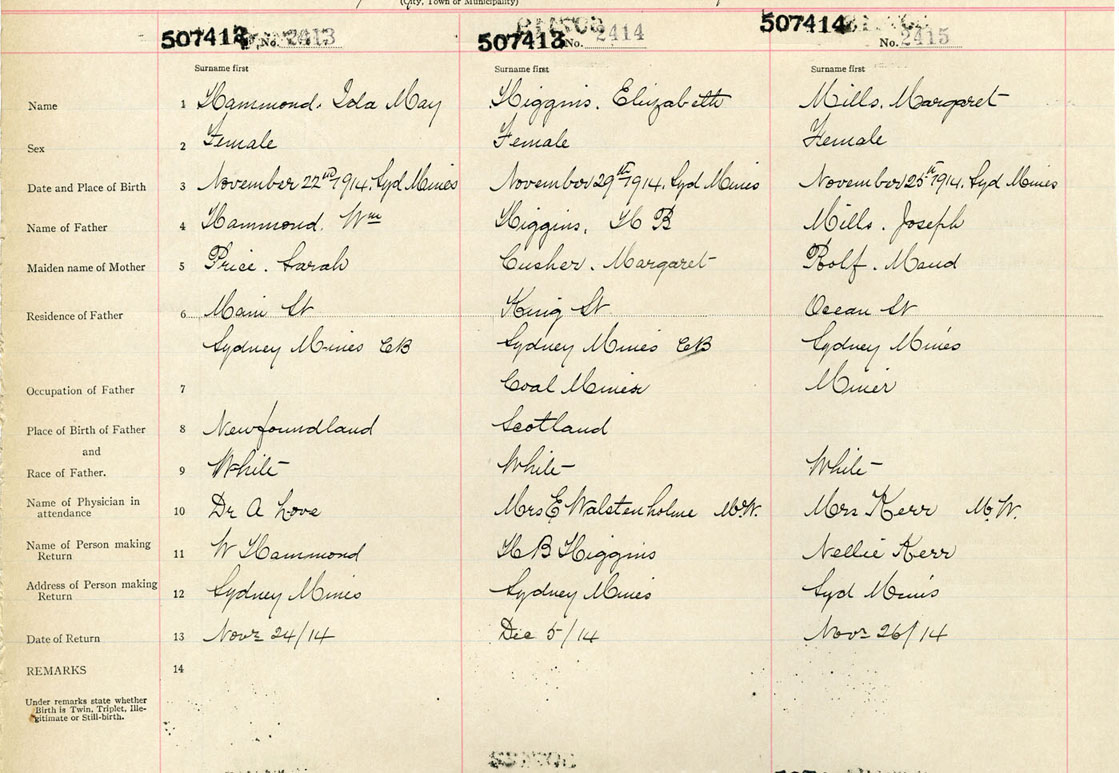 (City, Town or Municipality)
507413 No. 2413
507413 No. 2414
507414 No. 2415
Surname first Surname first Surname first
Name 1 Hammond. Ida May Higgins. Elizabeth Mills. Margaret
Sex 2 Female Female Female
Date and Place of Birth 3 November 22nd 1914. Syd Mines November 29th 1914. Syd Mines November 25th 1914. Syd Mines
Name of Father 4 Hammond. Wm Higgins. H B Mills. Joseph
Maiden name of Mother 5 Price. Sarah Cusher. Margaret Rolf. Maud
Residence of Father 6 Main St King St Ocean St
Sydney Mines CB Sydney Mines CB Sydney Mines
Occupation of Father 7 Coal Miner Miner
Place of Birth of Father 8 Newfoundland Scotland
and
Race of Father. 9 White White White
Name of Physician in
attendance 10 Dr A Love Mrs E Walstenholme M.W. Mrs Kerr M.W.
Name of Person making
Return 11 W Hammond H B Higgins Nellie Kerr
Address of Person making
Return 12 Sydney Mines Sydney Mines Syd Mines
Date of Return 13 Novr 24/14 Dec 5/14 Novr 26/14
REMARKS 14
Under remarks state whether
Birth is Twin, Triplet, Ille-
gitimate or Still-birth.